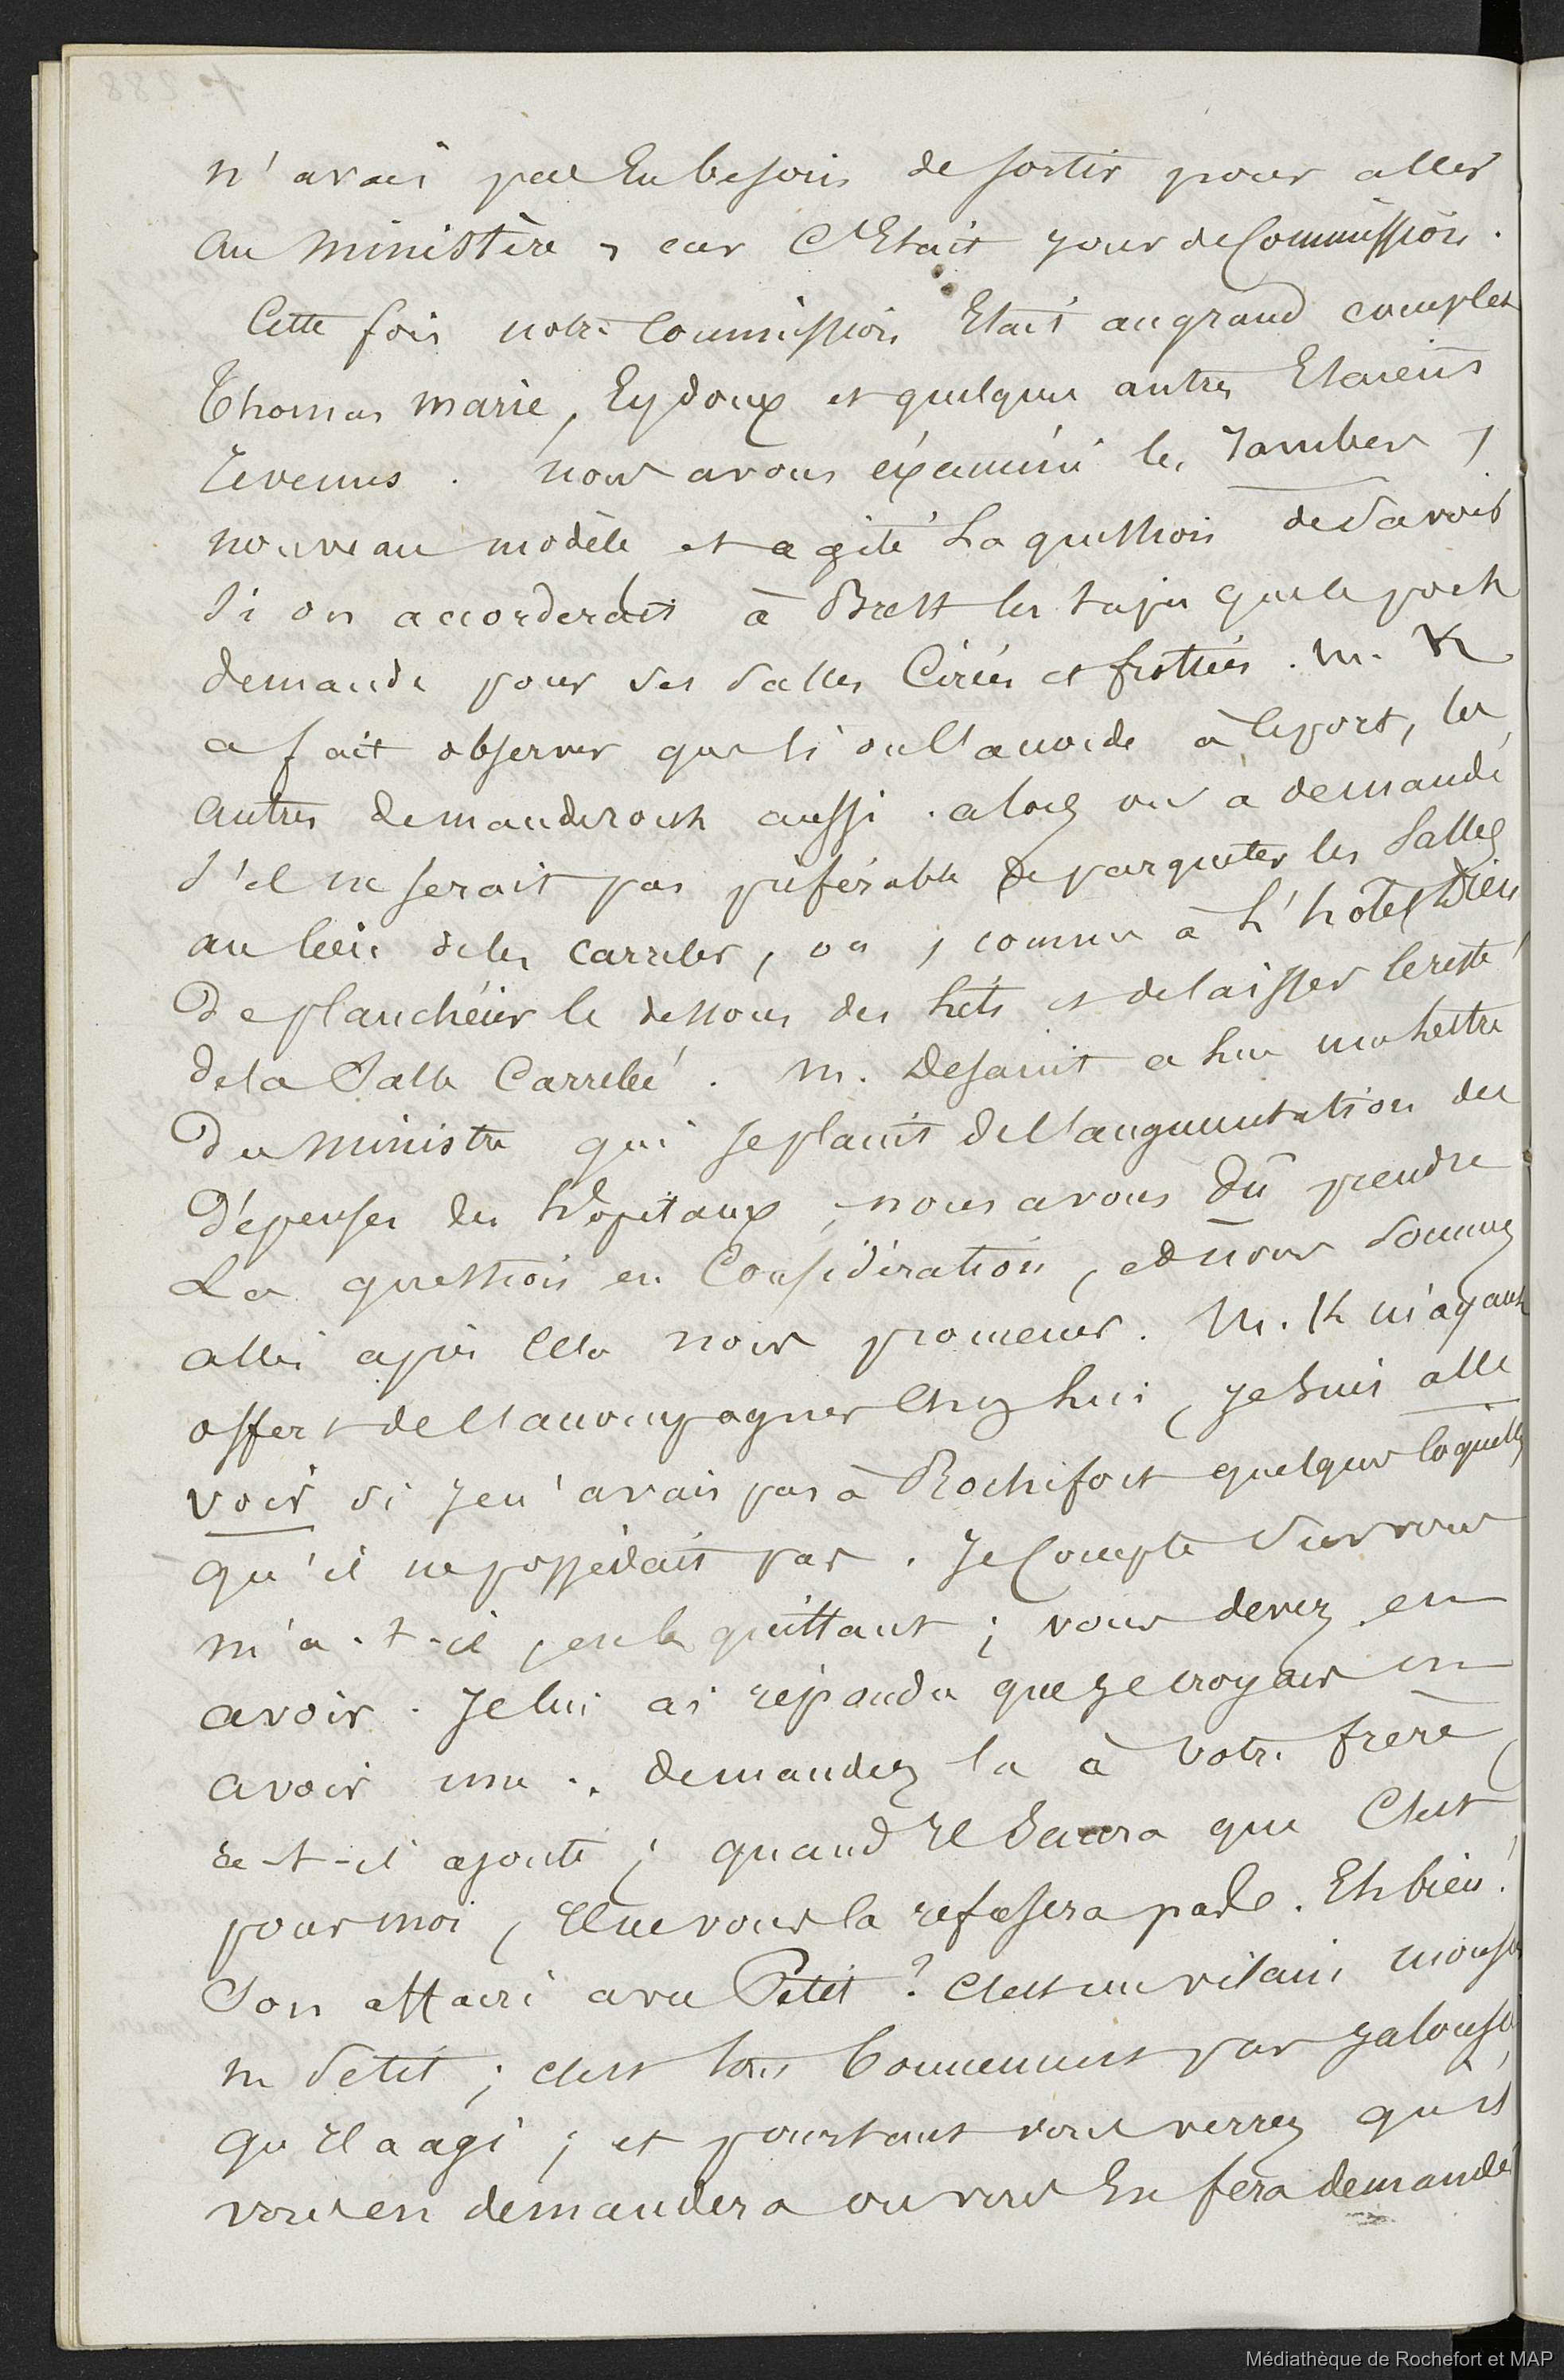 n'avais pas Eu besoin de sortir pour aller
au Ministère, car C'Etait jour de Commission.
Cette fois notre Commission Etait au grand complet
Thomas Marie, Eydoux et quelques autres Etaient
revenus. nous avons éxaminé les Jambes,
nouveau modèle et agité La question de Savoir
Si on accorderait à Brest les tapis que le port
demande pour ses Salles Cirées et frottées. M. K
a fait observer que si on l'accorde à ce port, les
autres demanderont aussi. alors on a demandé
S'il ne serait pas préférable de parqueter les Salles
au lieu de les carreler, ou, comme à L'hotel Dieu
De planchéier le dessous des lits et de laisser le reste
de la Salle Carrelée. M. Desaint a lu une lettre
Du Ministre qui se plaint de l'augmentation des
Dépenses des hôpitaux, nous avons Dû prendre
La question en Considération, et nous Sommes
allés après cela nous promener. M. K m'ayant
offert de l'accompagner Chez lui, je suis allé
voir si je n'avais pas à Rochefort quelques coquilles
qu'il ne possédait pas. Je Compte Sur vous
m'a-t-il, en le quittant; vous devez en
avoir. Je lui ai répondu que je croyais en
avoir une. demandez la à votre frère,
a-t-il ajouté; quand Il Saura que C'est
pour moi, Il ne vous la refusera pas. Eh bien!
Son affaire avec Petit? C'est un vilain
M Petit; c'est tout bonnement par jalousie
qu'Il a agi; et pourtant vous verrez qu'il
vous en demandera ou vous En fera demander